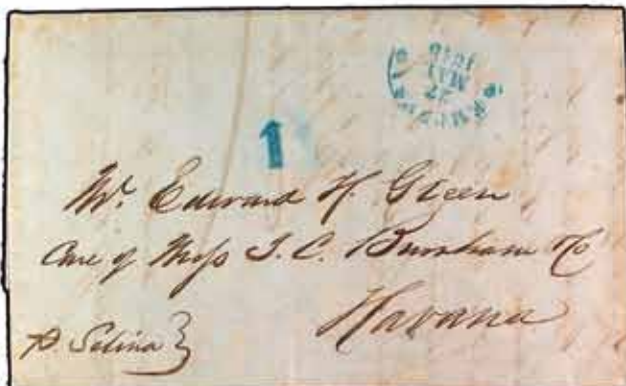 27
MAY
1
Mr. Edward H. Green
Care of Messs J. C. Burnham & Co
Havana
P Selina